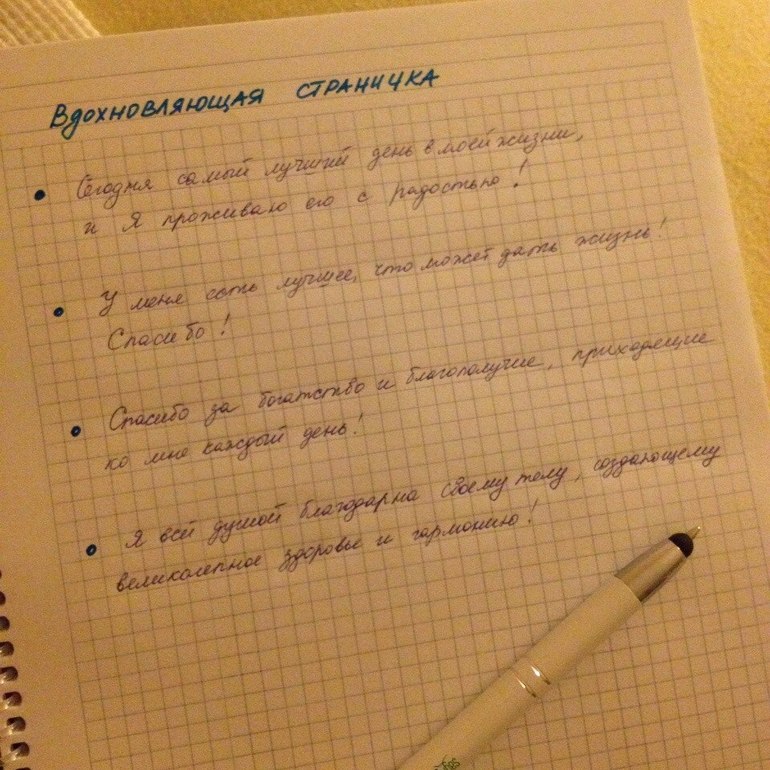 Вдохновляющая страничка
Сегодня самый лучший день в моей жизни,
и Я проживаю его с радостью!
У меня есть лучшее, что может дать жизнь!
Спасибо!
Спасибо за богатство и благополучие, приходящие
ко мне каждый день!
Я всей душой благодарна своему телу, создающему
великолепное здоровье и гармонию!